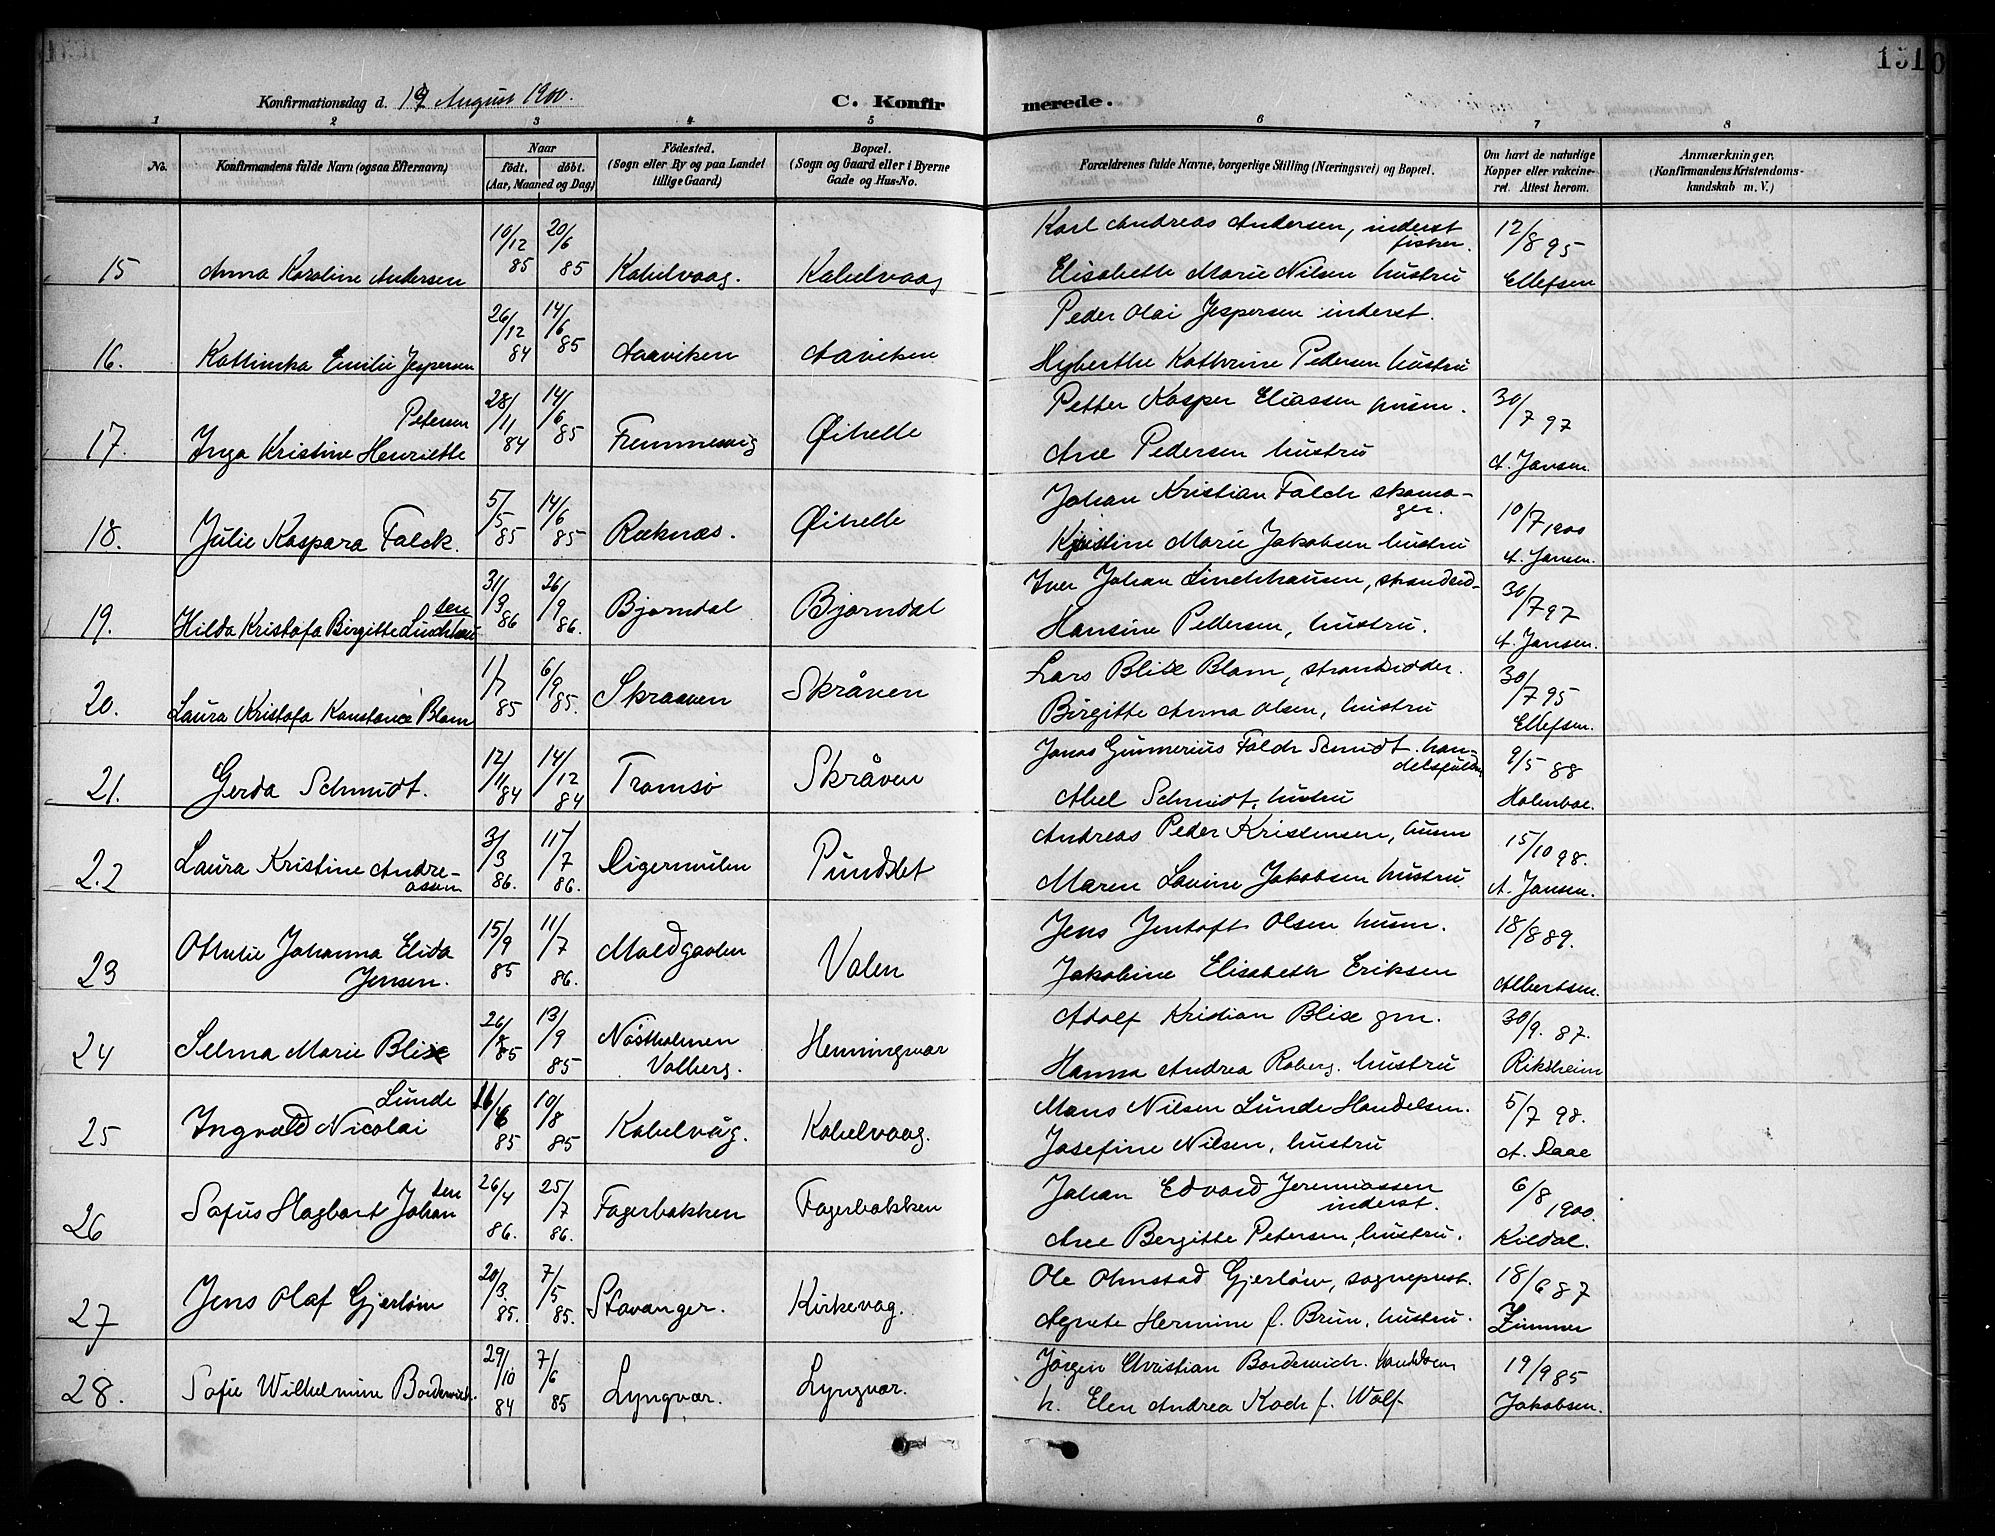 151
Konfirmationsdag d. 19 August 1900.
C. Konfir merede.
1 2 3 4 5 6 7 8
No. Konfirmandens fulde Navn (ogsaa Efternavn) Naar født, døbt. (Aar, Maaned og Dag) Fødested. (Sogn eller By og paa Landet tillige Gaard) Bopæl. (Sogn og Gaard eller i Byerne Gade og Hus-No. Forældrenes fulde Navne, borgerlige Stilling (Næringsvei) og Bopæl. Om havt de naturlige Kopper eller vakcineret. Attest herom. Anmærkninger. (Konfirmandens Kristendomskundskab m. V.)
15 Anna Karoline Andersen 10/12 85 20/6 85 Kabelvaag. Kabelvaag Karl Andreas Andersen, inderst fisker. 12/8 95
Elisabeth Marie Nilsen hustru Ellefsen
16. Kattinka Emilie Jespersen 26/12 84 14/6 85 Aaviken Aaviken Peder Olai Jespersen inderst.
Hyberthe Kathrine Pedersen hustru
17. Inga Kristine Henriette Petersen 28/11 84 14/6 85 Fremmesvig Øihelle Petter Kasper Eliassen husm. 30/7 97
Ane Pedersen hustru A. Jansen.
18. Julie Kaspara Falck. 5/5 85 14/6 85 Ræknæs. Øihelle Johan Kristian Falch skomager. 10/7 1900
Kristine Marie Jakobsen hustru A. Jansen.
19. Hilda Kristofa Birgitte 31/3 86 26/9 86. Bjorndal Bjorndal Iver Johan 30/7 97
Hansine Pedersen, hustru. A. Jansen.
20. Laura Kristofa Konstance Blom 1/7 85 6/9 85. Skraaven Skråven Lars Blixe Blom, strandsidder. 30/7 95
Birgitte Anna Olsen, hustru Ellefsen.
21. Gerda Schmidt. 12/11 84 14/12 84 Tromsø Skråven Jonas Gunnerius Falch Scmidt. 9/5 88
Abel Schmidt, hustru Holmboe.
22 Laura Kristine Andreassen 3/3 86. 11/7 86. Digermulen Pundslet Andreas Peder Kristensen, husm 15/10 98.
Maren Lovine Jakobsen hustru A. Jansen.
23 Othilie Johanna Elida Jensen. 15/9 85 11/7 86. Moldgavlen Valen Jens Jentoft Olsen husm. 18/8 89.
Jakobine Elisabeth Eriksen Albertsen.
24 Selma Marie Blixe 26/8 85 13/9 85 Nøstholmen Valberg. Henningvær Adolf Kristian Blixe gm. 30/9. 87.
Hanna Andrea Roberg. hustru Riksheim
25 Ingvald Nicolai Lunde 85 10/8 85 Kabelvåg. Kabelvaag. Mons Nilsen Lunde Handelsm. 5/7 98.
Josefine Nilsen, hustru A. Daae
26 Sofus Hagbart Johansen 26/4 86. 25/7 86. Fagerbakken Fagerbakken Johan Edvard Jeremiassen inderst. 6/8 1900.
Ane Bergitte Petersen, hustru. Kildal.
27 Jens Olaf Gjerløw 20/3. 85. 7/5 85. Stavanger. Kirkevåg. Ole Olmstad Gjerløw, sogneprest. 18/6 87
Agnete Hermine f. Brun, hustru. Zimmer
28. Sofie Wilhelmine Bordewich. 29/10 84 7/6 85 Lyngvær. Lyngvær. Jørgen Christian Bordewich. 19/9 85
h. Elen Andrea Koch f. Wolf Jakobsen.